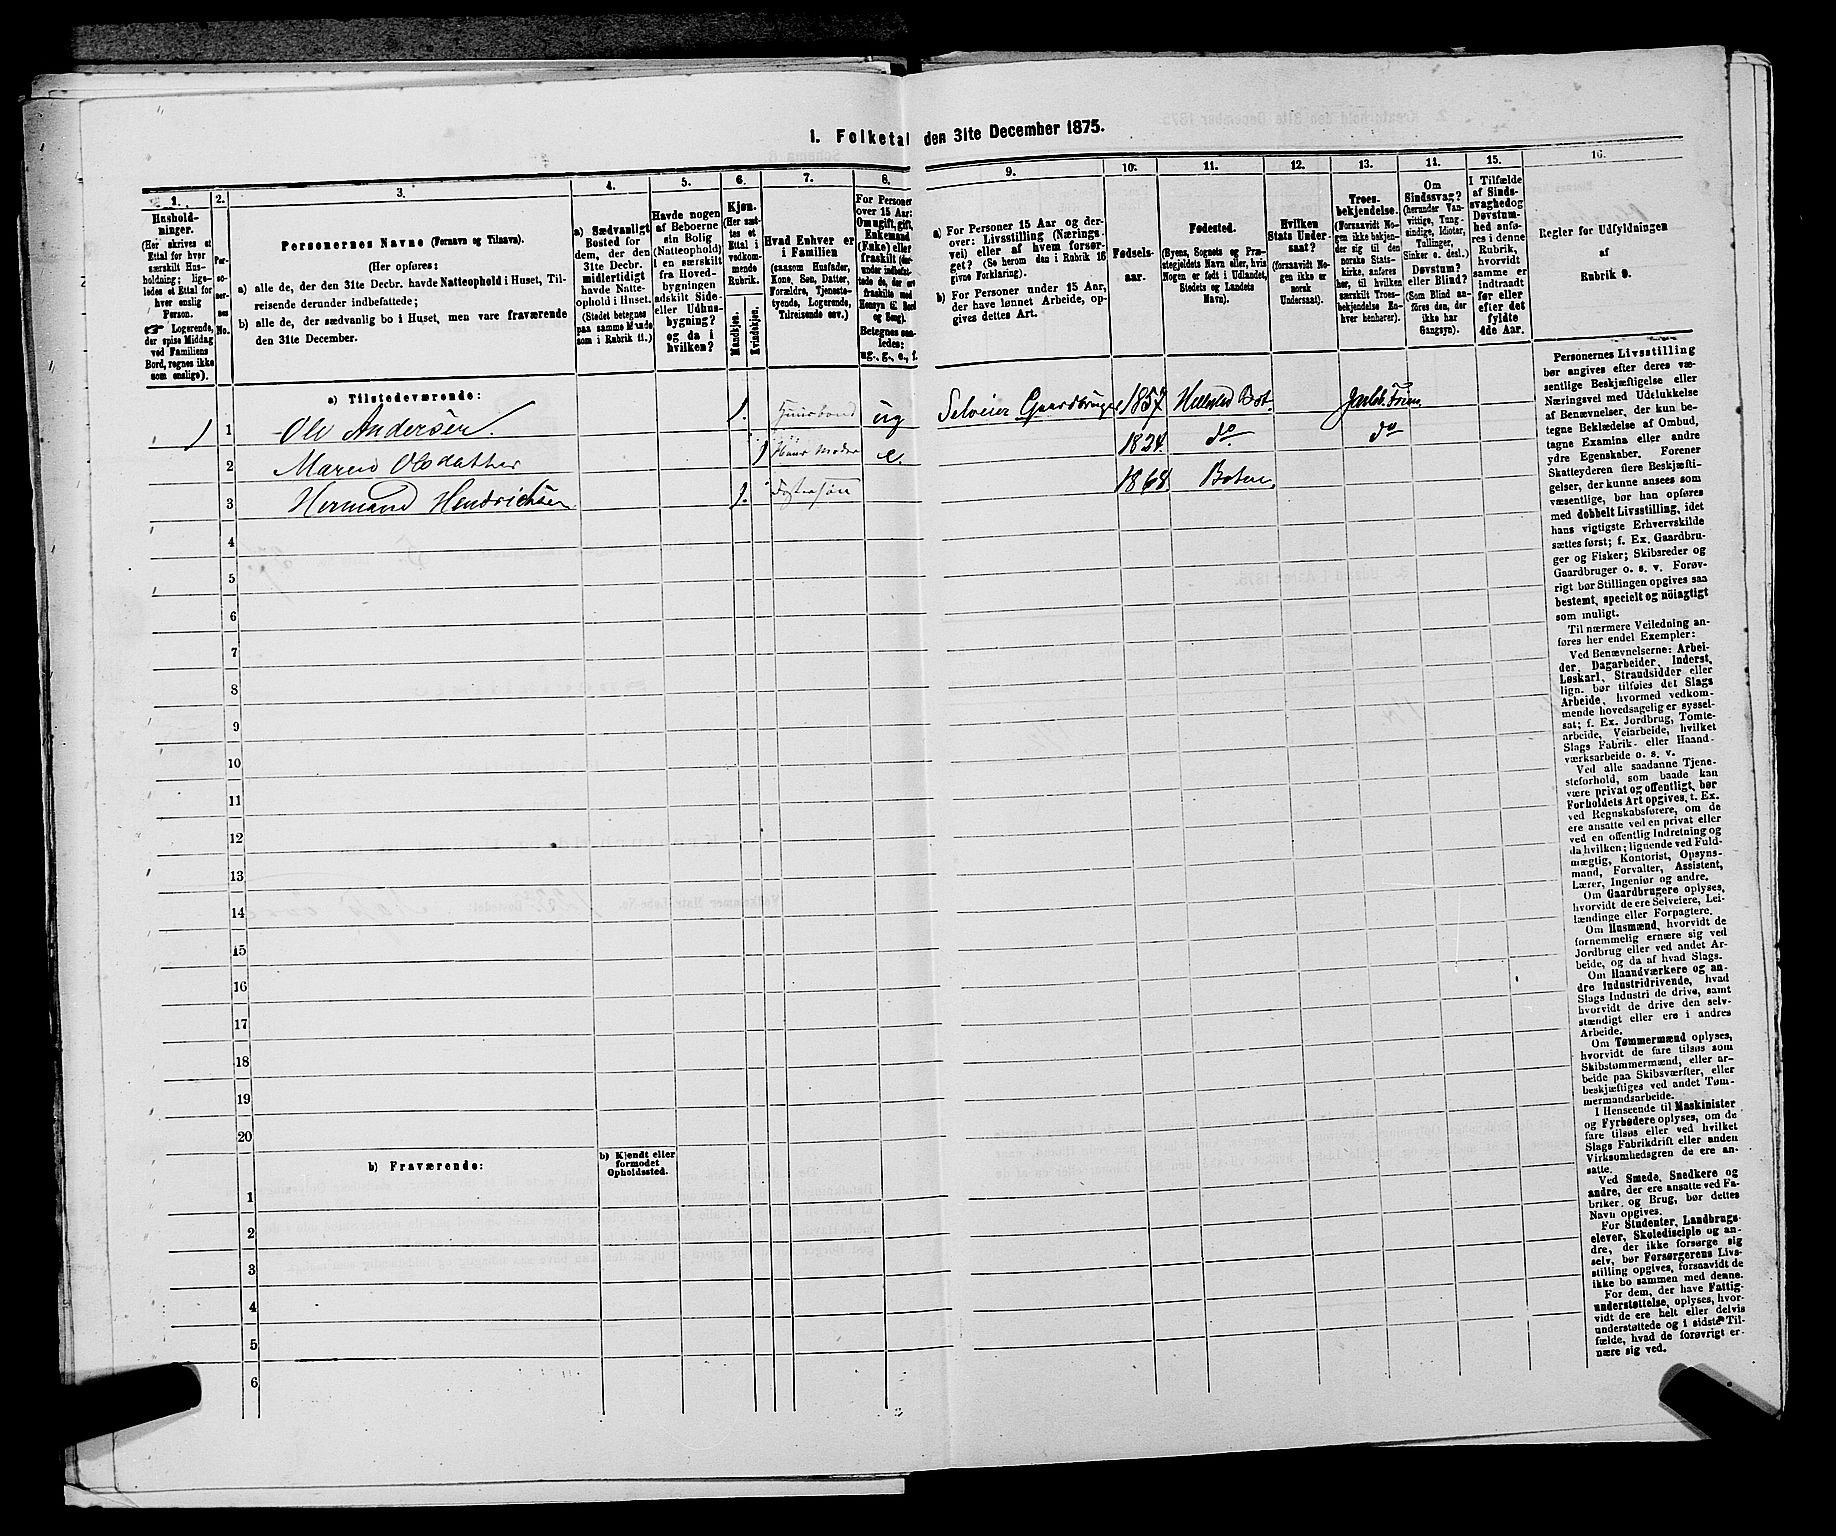 1. Folketal den 31te December 1875.
1.
2.
3.
4.
5.
6.
7.
8.
9.
10.
11.
12.
13.
14.
15.
16.
Hushold-
ninger.
(Her skrives et
Ettal for hver
særskilt Hus-
holdning; lige-
ledes et Ettal for
hver enslig
Person.
☞ Logerende,
der spise Middag
ved Familiens
Bord, regnes ikke
som enslige).
Per-
so-
ner-
nes
No.
Personernes Navne (Fornavn og Tilnavn).
(Her opføres:
a) alle de, der den 31te Decbr. havde Natteophold i Huset, Til-
reisende derunder indbefattede;
b) alle de, der sædvanlig bo i Huset, men vare fraværende
den 31te December.
a) Sædvanligt
Bosted for
dem, der den
31te Decbr.
midlertidigt
havde Natte-
ophold i Huset.
(Stedet betegnes
paa samme Maade
som i Rubrik 11.)
Havde nogen
af Beboerne
sin Bolig
(Natteophold)
i en særskilt
fra Hoved-
bygningen
adskilt Side-
eller Udhus-
bygning?
og da i
hvilken?
Kjøn.
(Her sæt-
tes et
Ettal i
vedkom-
mende
Rubrik.
Mandkjøn.
Kvindekjøn.
Hvad Enhver er
i Familien
(saasom Husfader,
Kone, Søn, Datter,
Forældre, Tjeneste-
tyende, Logerende,
Tilreisende osv.)
For Personer
over 15 Aar:
Om ugift, gift,
Enkemand
(Enke) eller
fraskilt (der-
under indbefat-
tede de, der ere
fraskilte med
Hensyn til Bord
og Seng).
Betegnes saa-
ledes:
ug., g., e., f.
a) For Personer 15 Aar og der-
over: Livsstilling (Nærings-
vei) eller af hvem forsør-
get? (Se herom den i Rubrik 16
givne Forklaring).
b) For Personer under 15 Aar,
der have lønnet Arbeide, op-
gives dettes Art.
Fødsels-
aar.
Fødested.
(Byens, Sognets og Præ-
stegjeldets Navn eller, hvis
Nogen er født i Udlandet,
Stedets og Landets
Navn).
Hvilken
Stats Under-
saat?
(forsaavidt No-
gen ikke er
norsk
Undersaat).
Troes-
bekjendelse.
(Forsaavidt No-
gen ikke bekjen-
der sig til den
norske Stats-
kirke, anføres
her, til hvilken
særskilt Troes-
bekjendelse En-
hver henhører).
Om
Sindssvag?
(herunder Van-
vittige, Tung-
sindige, Idioter,
Tullinger,
Sinker o. desl.)
Døvstum?
eller Blind?
(Som Blind an-
føres den, der
ikke har
Gangsyn).
I Tilfælde
af Sinds-
svaghed og
Døvstum-
hed anfø-
res i denne
Rubrik,
hvorvidt
samme er
indtraadt
før eller
efter det
fyldte
4de Aar.
Regler for Udfyldningen
af
Rubrik 9.
a) Tilstedeværende:
1 1 Ole Andersen. 1. Huusbond ug Selveier Gaardbruger 1857
2 Maren Olsdatter 1 e. 1824. do do
3 Hermand Hendrichsen 1. 1868
4
5
6
7
8
9
10
11
12
13
14
15
16
17
18
19
20
b) Fraværende:
b) Kjendt eller
formodet
Opholdssted.
1
2
3
4
5
6
Personernes Livsstilling
bør angives efter deres væ-
sentlige Beskjæftigelse eller
Næringsvei med Udelukkelse
af Benævnelser, der kun be-
tegne Beklædelse af Ombud,
tagne Examina eller andre
ydre Egenskaber. Forener
Skatteyderen flere Beskjæfti-
gelser, der kunne ansees som
væsentlige, bør han opføres
med dobbelt Livsstilling, idet
hans vigtigste Erhvervskilde
sættes først; f. Ex. Gaardbru-
ger og Fisker; Skibsreder og
Gaardbruger o. s. v. Forøv-
rigt bør Stillingen opgives saa
bestemt, specielt og nöiagtigt
som muligt.
Til nærmere Veiledning an-
føres her endel Exempler:
Ved Benævnelserne: Arbei-
der, Dagarbeider, Inderst,
Løskarl, Strandsidder eller
lign. bør tilføies det Slags
Arbeide, hvormed vedkom-
mende hovedsagelig er syssel-
sat; f. Ex. Jordbrug, Tomte-
arbeide, Veiarbeide, hvilket
Slags Fabrik- eller Haand-
værksarbeide o. s. v.
Ved alle saadanne Tjene-
steforhold, som baade kan
være privat og offentligt, bør
Forholdets Art opgives, t. Ex.
ved Regnskabsførere, om de
ere ansatte ved en privat eller
ved en offentlig Indretning og
da hvilken; lignende ved Fuld-
mægtig, Kontorist, Opsyns-
mand, Forvalter, Assistent,
Lærer, Ingeniør og andre.
Om Gaardbrugere oplyses,
hvorvidt de ere Selveiere, Lei-
lændinge eller Forpagtere.
Om Husmænd, hvorvidt de
fornemmelig ernære sig ved
Jordbrug eller ved andet Ar-
beide, og da af hvad Slags.
Om Haandværkere og an-
dre Industridrivende, hvad
Slags Industri de drive, samt
hvorvidt de drive den selv-
stændigt eller ere i andres
Arbeide.
Om Tømmermænd oplyses,
hvorvidt de fare tilsøs som
Skibstømmermænd, eller ar-
beide paa Skibsværfter, eller
beskjæftiges ved andet Tøm-
mermandsarbeide.
I Henseende til Maskinister
og Fyrbødere oplyses, om de
fare tilsøs eller ved hvilket
Slags Fabrikdrift eller anden
Virksomhedsgren de ere an-
satte.
Ved Smede, Snedkere og
andre, der ere ansatte ved Fa-
briker og Brug, bør dettes
Navn opgives.
For Studenter, Landbrugs-
elever, Skoledisciple og an-
dre, der ikke forsørge sig
selv, bør Forsørgerens Livs-
stilling opgives, forsaavidt de
ikke bo sammen med denne.
For dem, der have Fattig-
understøttelse, oplyses, hvor-
vidt de ere helt eller delvis
understøttede og i sidste Til-
fælde, hvad de forøvrigt er-
nære sig ved.